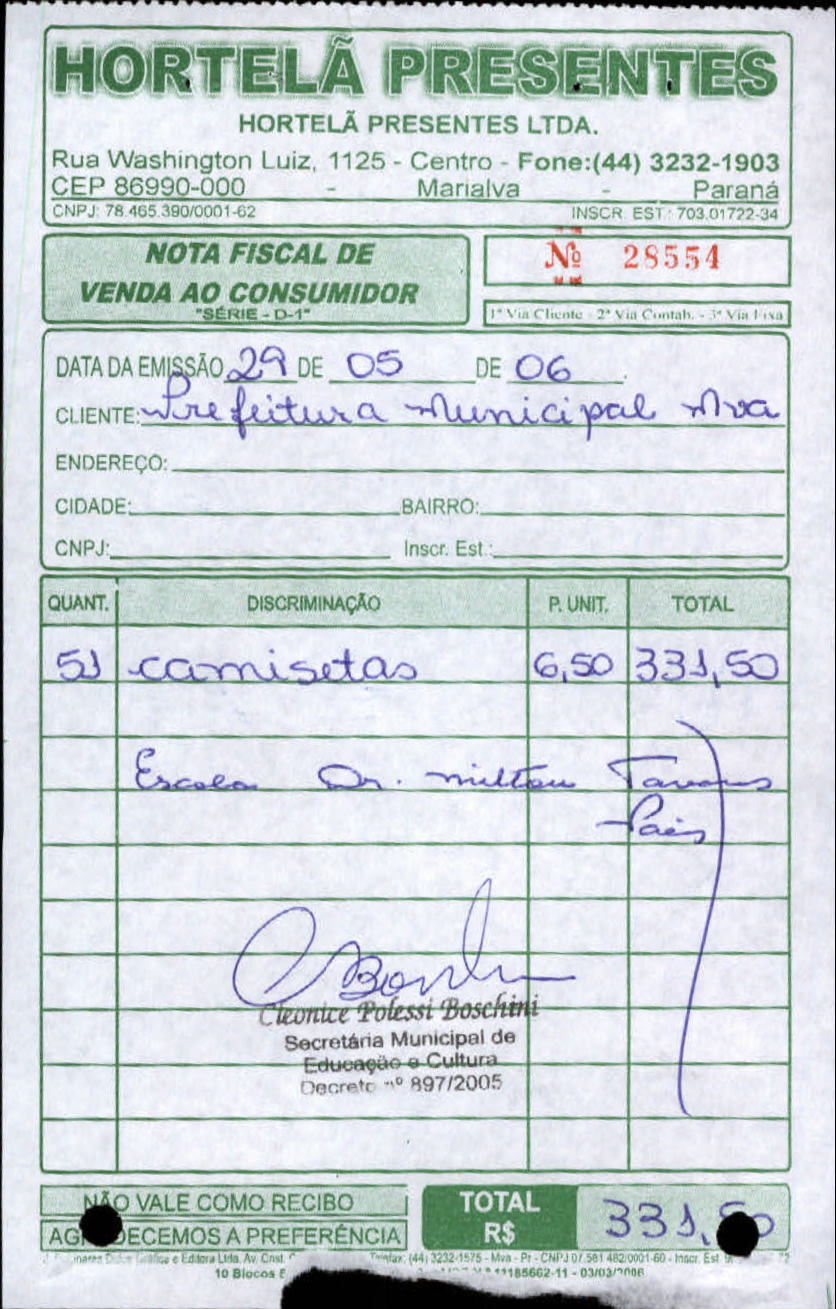 HORTELÃ PRESENTES
HORTELÃ PRESENTES LTDA.
Rua Washington Luiz, 1125 - Centro - Fone:(44) 3232-1903
CEP 86990-000 - Marialva - Paraná
CNPJ: 78.465.390/0001-62 INSCR. EST.: 703.01722-34
NOTA FISCAL DE
VENDA AO CONSUMIDOR
"SÉRIE - D-1"
Nº 28554
1ª Via Cliente - 2ª Via Contab. - 3ª Via Fixa
DATA DA EMISSÃO 29 DE 05 DE 06
CLIENTE: Prefeitura Municipal Mva
ENDEREÇO:
CIDADE: BAIRRO:
CNPJ: Inscr. Est.:
QUANT. DISCRIMINAÇÃO P. UNIT. TOTAL
51 camisetas 6,50 331,50
Escola Dr. Milton Tavares
Paes
Cleonice Polessi Boschini
Secretária Municipal de
Educação e Cultura
Decreto nº 897/2005
NÃO VALE COMO RECIBO
AGRADECEMOS A PREFERÊNCIA
TOTAL
R$ 331,50
Gráfica e Editora Ltda. Av. Crist. Telefax: (44) 3232-1575 - Mva - Pr - CNPJ 07.581.482/0001-60 - Inscr. Est.
10 Blocos 11185662-11 - 03/03/2006